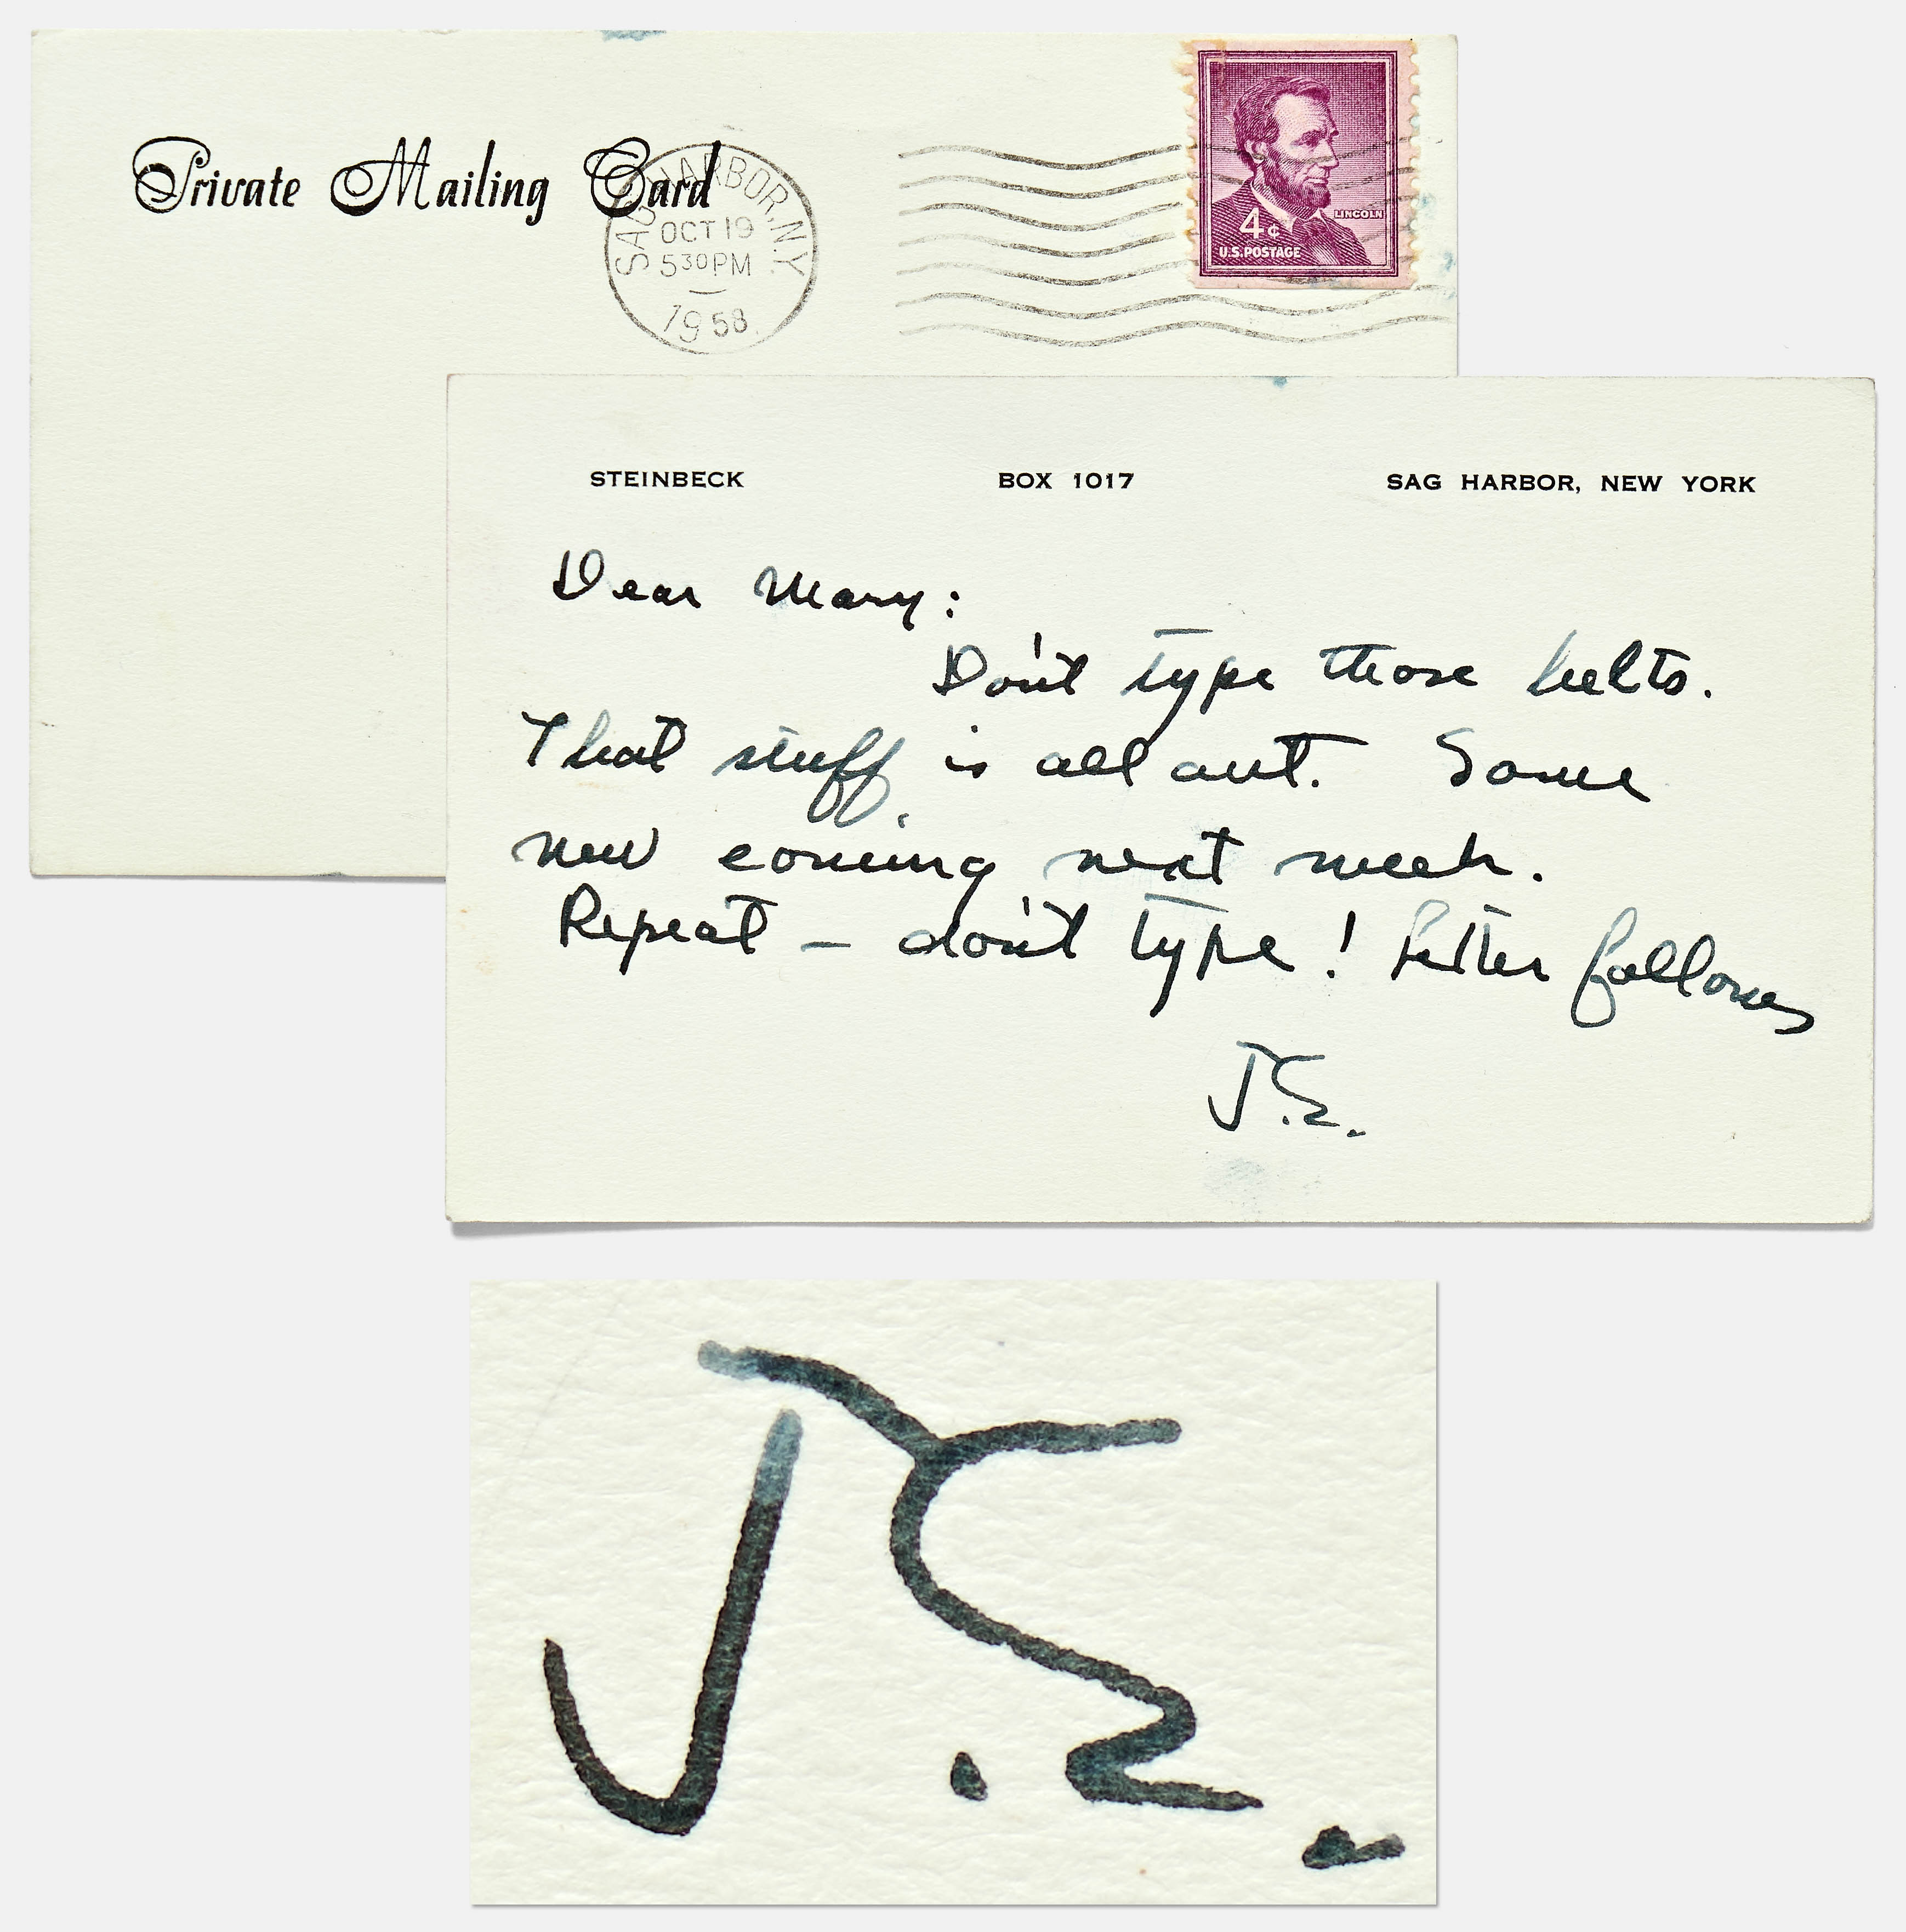 Private Mailing Card
SAG HARBOR, N.Y.
OCT 19
5 30 PM
1958
LINCOLN
4¢
U.S. POSTAGE
STEINBECK BOX 1017 SAG HARBOR, NEW YORK
Dear Mary:
Don't type those belts.
That stuff is all out. Some
new coming next week.
Repeat — don't type! Letter follows
J.S.
J.S.